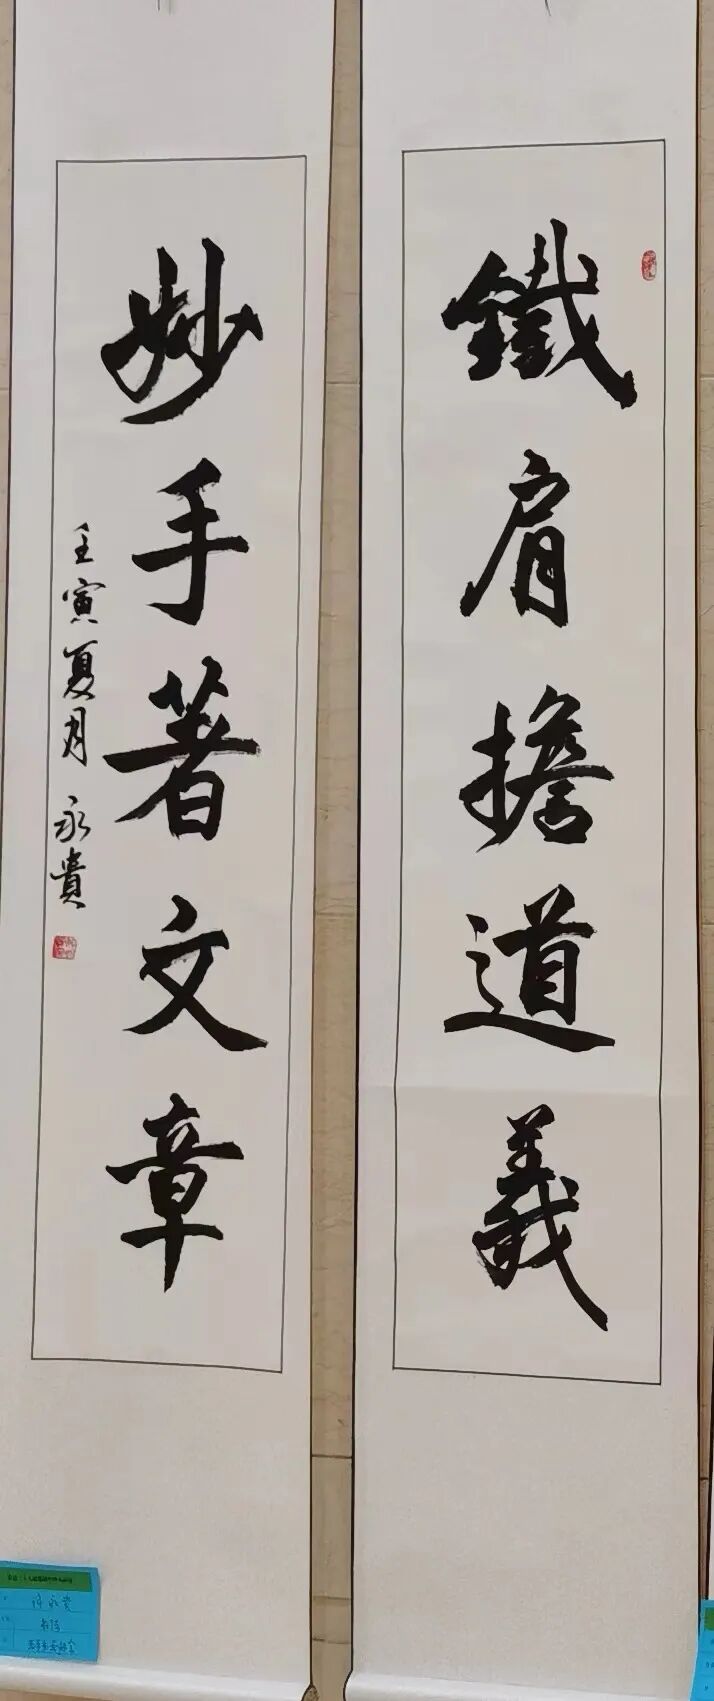 鐵肩擔道義
妙手著文章
壬寅夏月 永貴